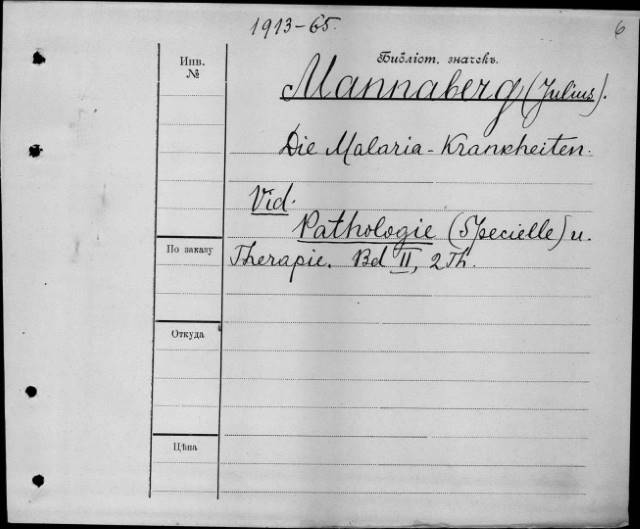 1913-65.
6
Инв.
№
Библіот. значекъ.
Mannaberg (Julius).
Die Malaria-Krankheiten.
Vid.
Pathologie (Specielle) u.
По заказу
Therapie. Bd II, 2Th.
Откуда
Цѣна